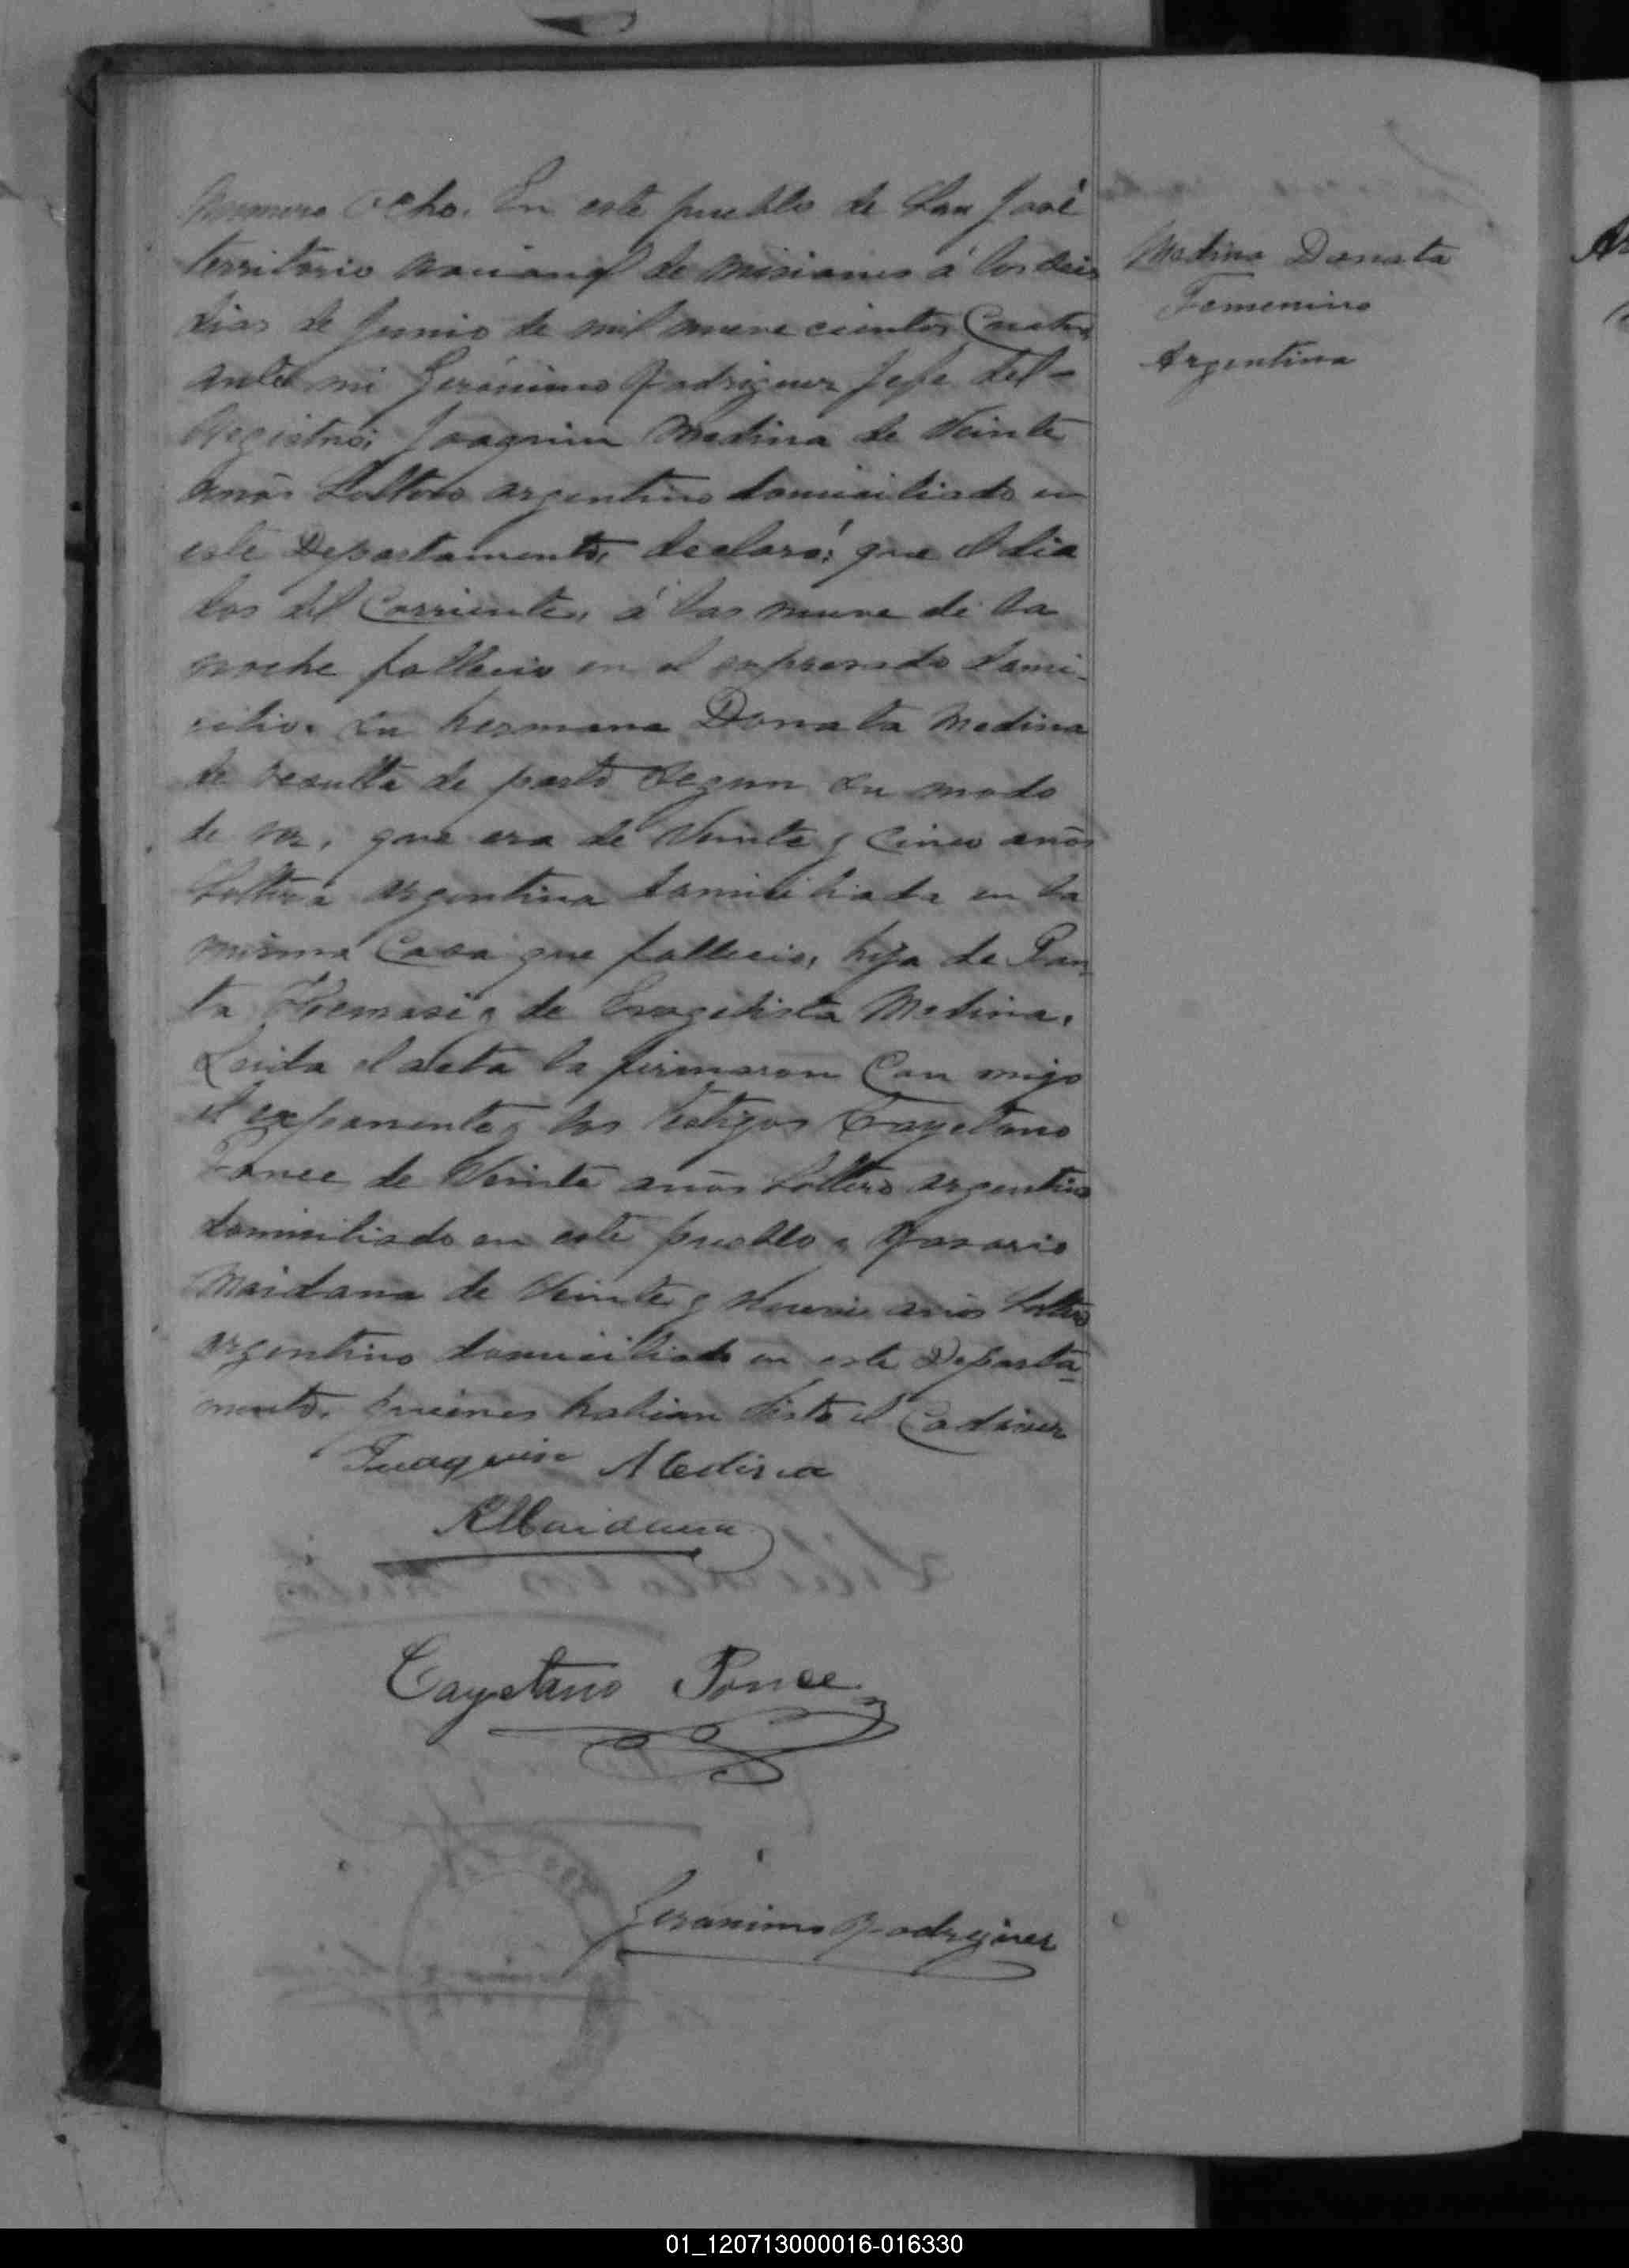 Numero Ocho. En este pueblo de San José
territorio nacional de Misiones á los seis
dias de Junio de mil nueve cientos Cuatro
ante mi Gerónimo Rodriguez Jefe del
Registro; Joaquin Medina de Veinte
anõs Soltero argentino domiciliado en
este Departamento, declaró: que el dia
dos del Corriente, á las nueve de la
noche fallecio en el expresado domi-
cilio. su hermana Donata Medina
de resulta de parto segun su modo
de ver, que era de Veinte y Cinco anõs
Soltera argentina domiciliada en la
misma Casa que fallecio, hija de
de Medina.
Leida el acta la firmaron Con migo
el exponente y los testigos Cayetano
Ponce de Veinte anõs Soltero argentino
domiciliado en este pueblo y Rosario
Maidana de Veinte y Nueve anõs Soltero
argentino domiciliado en este Departa-
mento. quienes habian visto el Cadaver
Juaquin Medina
RMaidana
Cayetano Ponce
Geronimo Rodriguez
Medina Donata
Femenino
Argentina
01_120713000016-016330